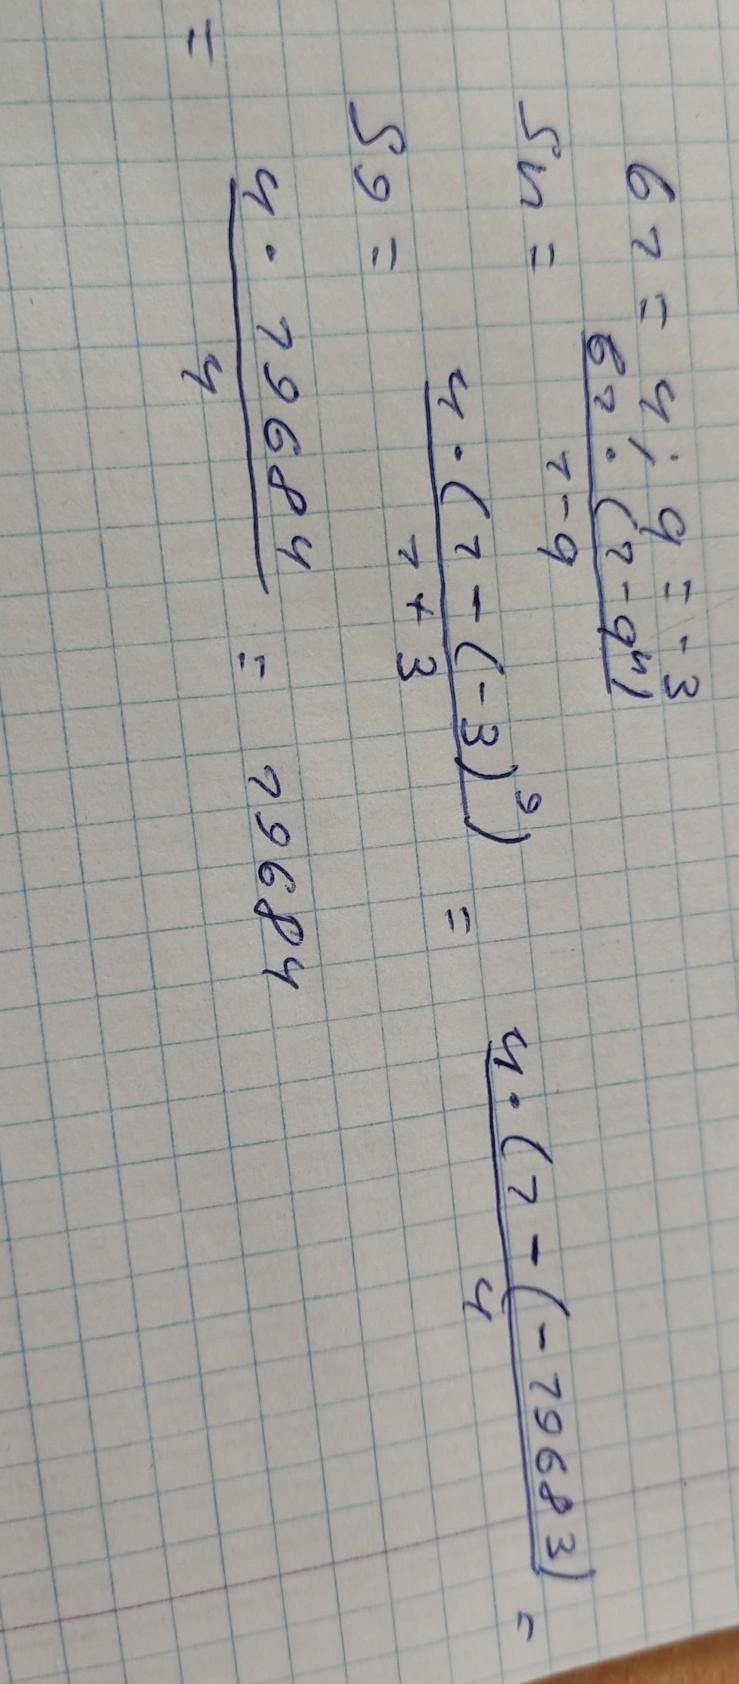 b1 = 4; q = -3
Sn = b1 · (1 - q^n) / 1 - q
S9 = 4 · (1 - (-3)^9) / 1 + 3 = 4 · (1 - (-19683) / 4 =
= 4 · 19684 / 4 = 19684